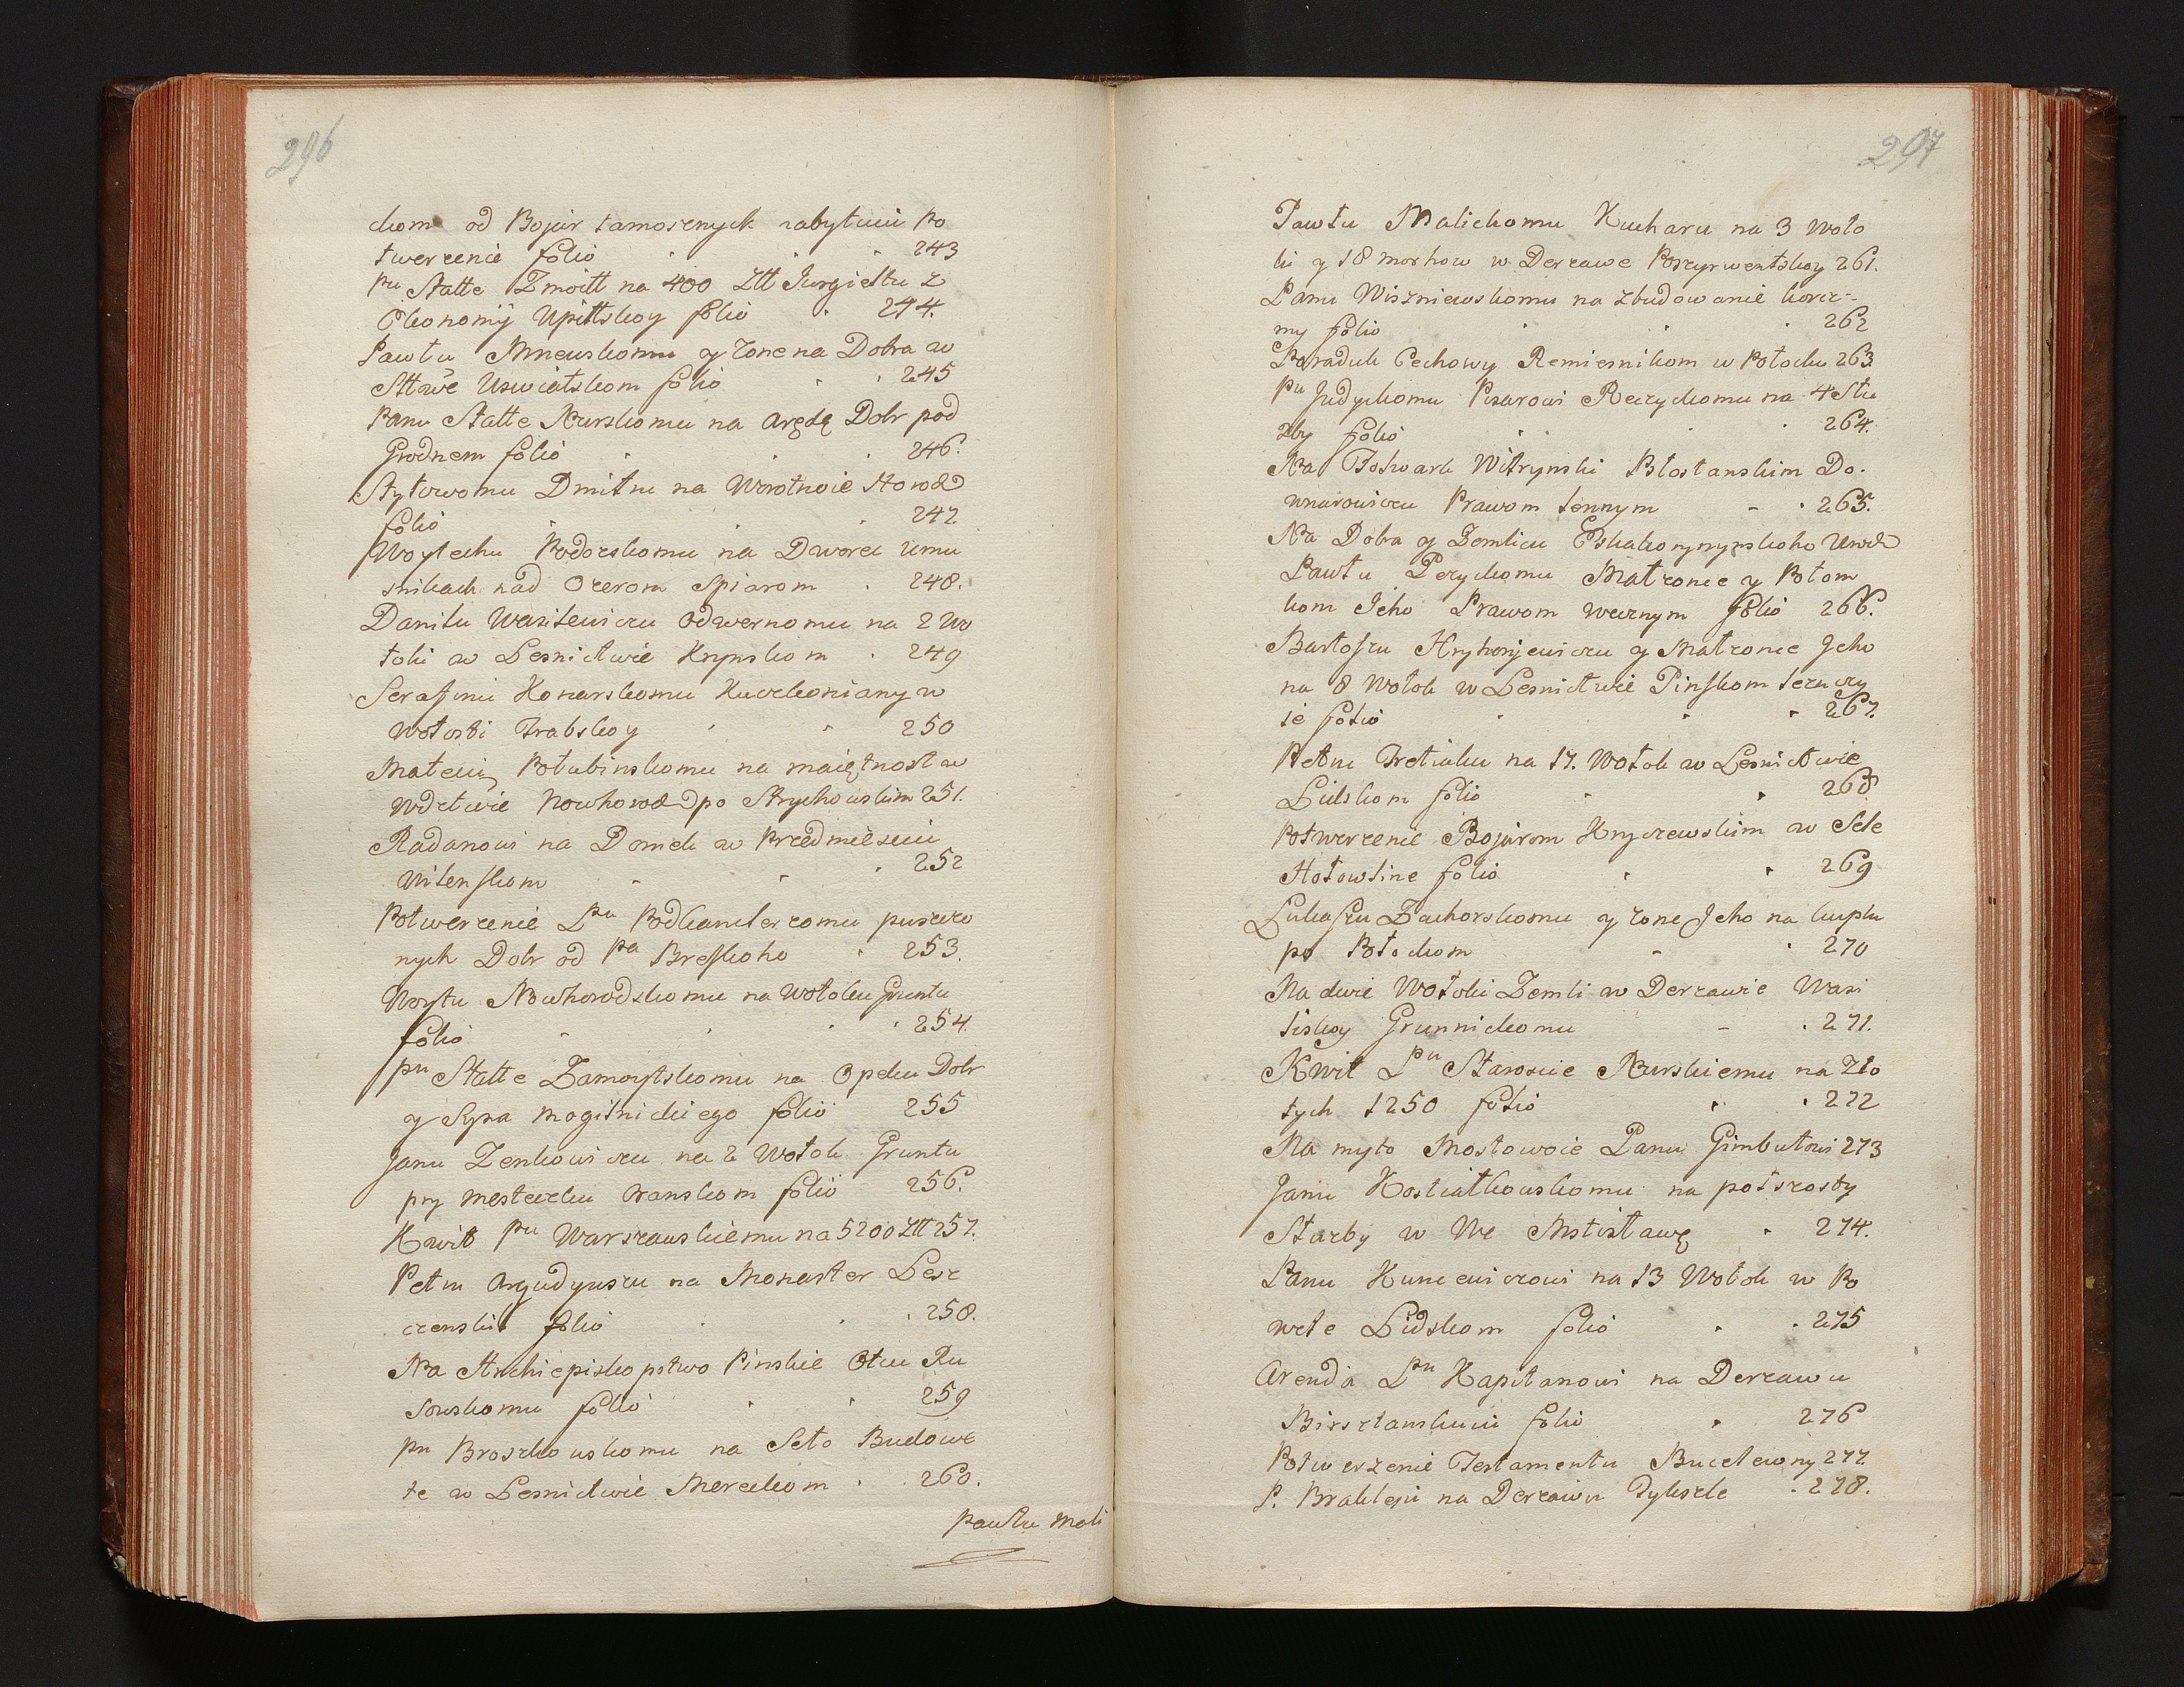 296
ckom od Bojar tamosznych nabytuiu Po
twerzenie folio 243
Pu Statte Zmoitt na 400 Ztt Jurgieltu z
Ekonomij Upittskoy folio 244.
Pawłu Mnewskomu y żone na Dobra w
Sttwe Uswiatskom folio 245
Panu Statte Nurskomu na arędę Dobr pod
Grodnem folio 246.
Stytowomu Dmitru na Worotnoie Horod
folio 247.
Woytechu Podorskomu na Dworec Umu
snikach nad Ozerom Spiarom 248.
Daniłu Wasilewiczu Odwernomu na 2 Wo
łoki w Lesnictwie Krynskom 249
Serafinu Konarskomu Kuczkoniany w
Wołosti Trabskoy 250
Mateiu Połubinskomu na maiętnost w
Wdztwie Nowhorod po Strychowskim 251.
Radanowi na Domek w Predmiesciu
Witenskom 252
Potwerzenie Pu Podkanclerzomu puszczo
nych Dobr od Pa Breskoho 253.
Woytu Nowhorodskomu na Wołoku Gruntu
folio 254.
Pu Statte Zamoytskomu na Opeku Dobr
y Syna Mogilnickiego folio 255
Janu Zenkowiczu na 2 Wołok Gruntu
pry Mesteczku Oranskom folio 256.
Kwit Pu Warszawskiemu na 5200 Ztt 257.
Petru Argudyuszu na Monaster Lesz
czenskit folio 258.
Na Archiepiskopstwo Pinskie Otcu Ru
sowskomu folio 259
Pu Broszkowskomu na Seło Budowe
te w Lesnictwie Mereckom 260.
Pawłu Mali
297
Pawłu Malickomu Kucharu na 3 Woło
ki y 18 morhow w Derzawe Poszyrwentskoy 261.
Panu Wiszniewskomu na zbudowanie korcz=
my folio 262
Poraduk Cechowy Remiesnikom w Połocku 263
Pu Judyckomu Pisarowi Reczyckomu na 4 Słu
zby folio 264.
Na Folwark Witrynski Płostanskim Do.
wnarowiczu Prawom lennym 265.
Na Dobra y Zemlicu
Pawłu Peryckomu Małzonce y Potom
kom Jeho Prawom wecznym folio 266.
Bartoszu Hryhorjewiczu y Małzonce Jeho
na 8 Wołok w Lesnictwie Pinskom
se folio 267.
Petru Tretiaku na 17. Wołok w Lesnictwie
Lidskom folio 268
Potwerzenie Bojarom Kryczewskim w Sele
Hołowline folio 269
Lukaszu Zachorskomu y żone Jeho na kuplu
po Połockom 270
Na dwie Wołoki Zemli w Derzawie Wasi
liskoy Grunnickomu 271.
Kwit Pu Starosцie Nurskiemu na Zło
tych 1250 folio 272
Na myto Mostowoie Panu Gimbutowi 273
Janu Kostiałkowskomu na połszosty
Starby w We Mstisławę 274.
Panu Kuncewiczowi na 13 Wołok w Po
wete Lidskom folio 275
Arenda Pu Kapitanowi na Derzawu
Birsztanskuiu folio 276
Potwerzenie Testamentu Bucelewny 277
P. Brahleju na Derzawu Tykszle 278.